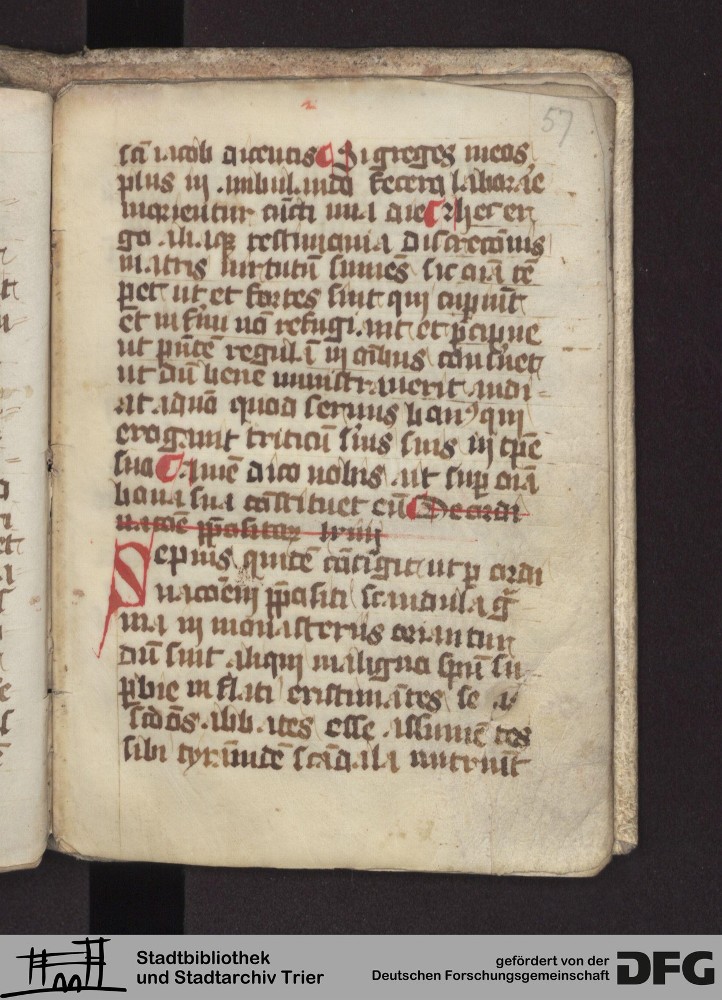 57
scī iacob dicentis Si greges meos
plus in ambulando fecero laborare
morientur cūcti una die Hec er
go aliaque testimonia discreconis
matris virtutū sumēs sic oīa tē
pet ut et fortes sint qui cupiunt
et infirmi nō refugiant et precipue
ut p̄ntē regulā in oībus conseruet
ut dū bene ministrauerit audi
at a dnō quod seruus bonus qui
erogauit triticū suis in tpē
suo Amē dico uobis ait sup oīa
bona sua cōstituet eū De ordi
nacōe ppositi lxv
Sepius quidē cōtigit ut p ordi
nacōem ppositi scandula g̃
uia in monasteriis oriantur
dū sint aliqui maligno spū su
pbie inflati existimātes se
scdōs abbates esse assumētes
sibi tyrānidē scādala nutriūt
Stadtbibliothek
und Stadtarchiv Trier
gefördert von der
Deutschen Forschungsgemeinschaft
DFG